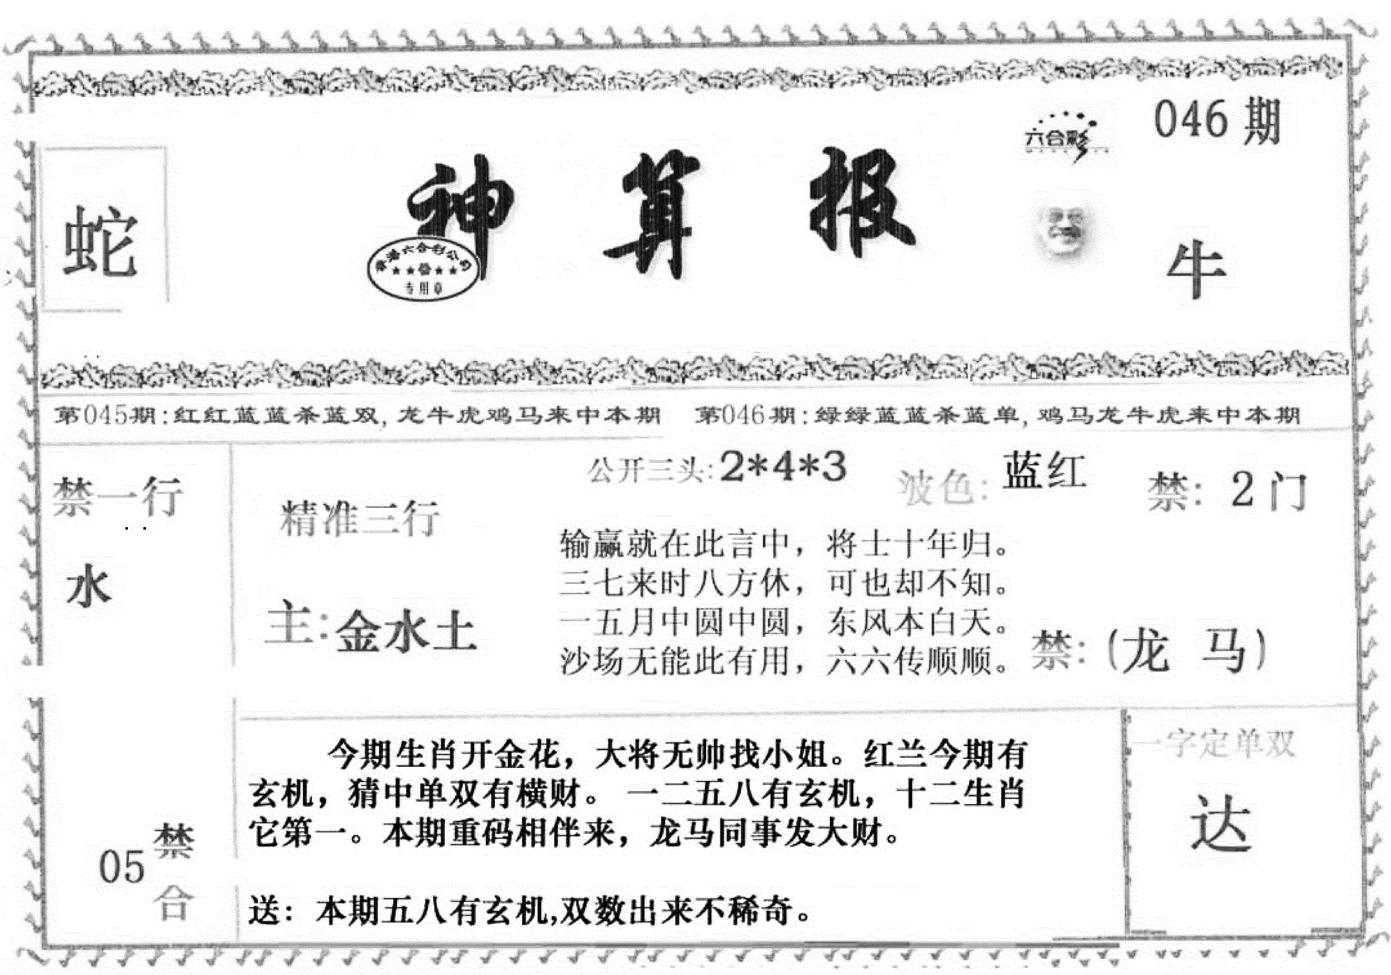 046期
六合彩
蛇
神算报
香港六合彩公司
专用章
牛
第045期:红红蓝蓝杀蓝双,龙牛虎鸡马来中本期 第046期:绿绿蓝蓝杀蓝单,鸡马龙牛虎来中本期
禁一行
水
精准三行
主:金水土
公开三头:2*4*3
波色:蓝红
禁:2门
输赢就在此言中，将士十年归。
三七来时八方休，可也却不知。
一五月中圆中圆，东风本白天。
沙场无能此有用，六六传顺顺。
禁:(龙 马)
05禁合
今期生肖开金花，大将无帅找小姐。红兰今期有
玄机，猜中单双有横财。 一二五八有玄机，十二生肖
它第一。本期重码相伴来，龙马同事发大财。
送：本期五八有玄机,双数出来不稀奇。
一字定单双
达